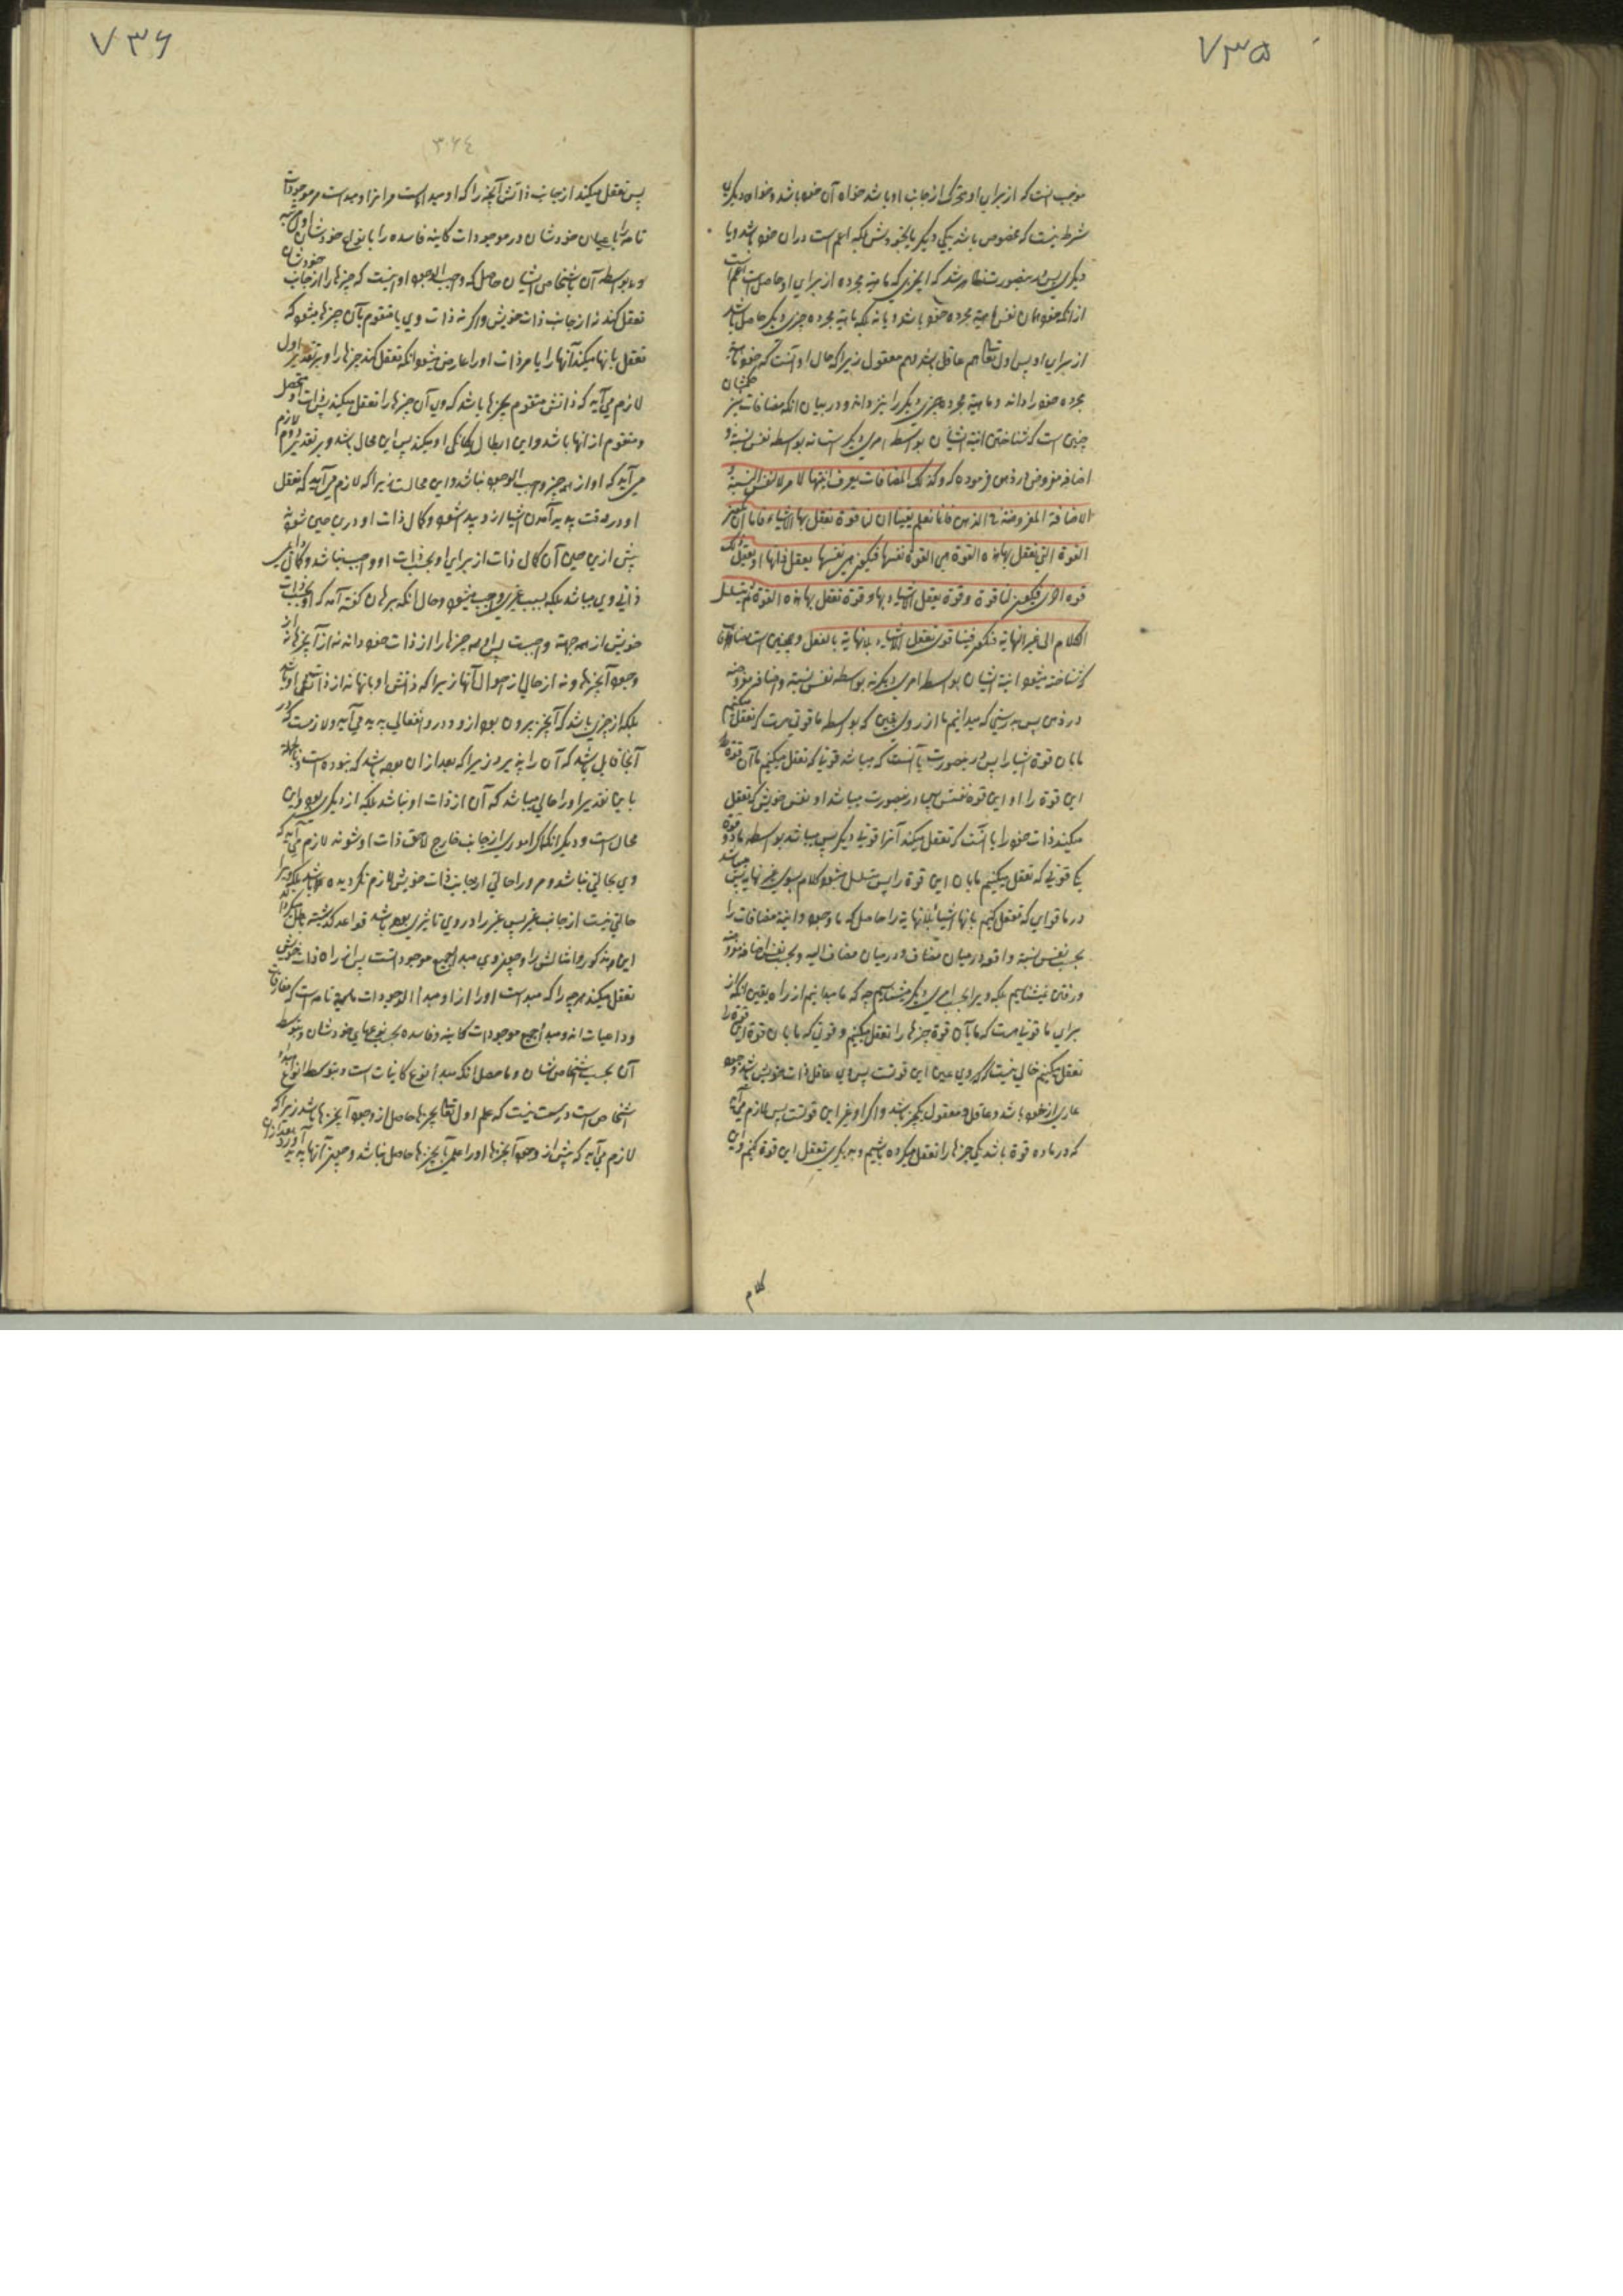 ۷۳۵
موجب است که از برای او متحرک از جانب او باشد خواه آن خود باشد و خواه دیگر یا
شرط نیست که مخصوص باشد بیکی دیگر یا بخودش بلکه اعم است در آن خود باشد و یا
دیگری پس در صورت ظاهر شد که اینچیزی که ماهیة مجرده از برای او حاصل است اعم است
از آنکه خود همان نفس ماهیة مجرده خود باشد و یا نه بلکه ماهیة مجرده چیزی دیگر حاصل باشد
از برای او پس اول تعالی هم عاقل باشد و هم معقول زیرا که حال او آنست که خود ماهیة
مجرده خود را داند و ماهیة مجرده چیزی دیگر را نیز داند و در بیان آنکه مضافات نیز
چنین است که شناختن انیة ایشان بواسطه امری دیگر است نه بواسطه نفس نسبة و
اضافه مفروض در ذهن فرموده که وکذلک المضافات یعرف انیتها لامر لا لنفس النسبة و
الاضافة المفروضة فی الذهن فانا نعلم یقینا ان لنا قوة نعقل بها الاشیاء فاما ان یکون
القوة التی نعقل بها هذه القوة هی القوة نفسها فیکون هی نفسها یعقل ذاتها او یعقل ذلک
قوة اخری فیکون لنا قوة وقوة یعقل الاشیاء بها وقوة نعقل بها هذه القوة ثم یتسلسل
الکلام الی غیر النهایة فیکون فینا قوی تعقل الاشیاء بلا نهایة بالفعل و همچنین است مضافات
که شناخته میشود انیة ایشان بواسطه امری دیگر نه بواسطه نفس نسبة و اضافه مفروضه
در ذهن پس بدرستی که میدانیم ما از روی یقین که بواسطه ما قوتی هست که تعقل میکنیم
ما بآن قوة اشیا را پس در صورت یا آنست که میباشد قوتی که تعقل میکنیم ما آن قوة
این قوة را او این قوة نفسش پس در صورت میباشد او نفس خویش که تعقل
میکند ذات خود را یا آنست که تعقل میکند آنرا قوتی دیگر پس میباشد بواسطه ما دو قوة
یکی قوتی که تعقل میکنیم ما بآن این قوة را پس تسلسل میشود کلام بسوی غیر نهایة پس میباشد
در ما قوای که تعقل کنیم بآنها اشیا بلا نهایة را حاصل که ما وجود و انیة مضافات را
بحسب نفس نسبة واقعه در میان مضاف و در میان مضاف الیه و بحسب نفس اضافه مفروضه
در ذهن نمیشناسیم بلکه ویرا بحسب امری دیگر میشناسیم چه که ما میدانیم از راه یقین آنکه از
برای ما قوتی هست که ما بآن قوة چیزها را تعقل میکنیم و قوتی که ما بآن قوة این قوة را
تعقل میکنیم خالی نیست که گر وی عین این قوتست پس وی عاقل ذات خویش باشد و وجود
عاری از خلو باشد و عاقل و معقول یکچیز باشد و اگر او غیر این قوتست پس لازم می‌آید
که در ماده قوة باشد یکی چیزها را تعقل میکرده باشیم و بدیگری تعقل این قوة کنیم و این
کلام
۷۳۶
۳۶۴
پس تعقل میکند از جانب ذاتش آنچیز را که او مبداست مر آنرا و مبداست مر موجودات
تامه را باعیان خودشان و مر موجودات کاینه فاسده را بانواع خودشان اول مرتبه
و بواسطه آن باشخاص ایشان حاصل که واجب الوجود او نیست که چیزها را از جانب خودشان
تعقل کند نه از جانب ذات خویش و اگر نه ذات وی یا متقوم بآن چیزها میشود که
تعقل بآنها میکند آنها را یا مر ذات او را عارض میشود آنکه تعقل کند چیزها را و بر تقدیر اول
لازم می‌آید که ذاتش متقوم بچیزها باشد که وی آن چیزها را تعقل میکند پس ذات او متحصل
و متقوم از آنها باشد و این ابطال یگانگی او میکند پس این محال باشد و بر تقدیر دوم لازم
می‌آید که او از همه چیز واجب الوجود نباشد و این محالست زیرا که لازم می‌آید که تعقل
او در وقت پدید آمدن اشیا از و پدید شود و کمال ذات او در این حین شود و
پیش ازین حین آن کمال ذات از برای او بحسب ذات او واجب نباشد و کمال
ذاتی وی میباشد بلکه بسبب غیری واجب میشود و حال آنکه برهان گفته آمد که او بحسب ذات
خویش از همه جهة واجبست پس او همه چیزها را از ذات خود داند نه از آنچیزها نه از
وجود آنچیزها و نه از حالی از احوال آنها زیرا که دانش او بآنها نه از ذاتش می‌باشد
بلکه از چیزی باشد که آنچیز بیرون بود از و و در و انفعالی پدید می‌آید و لازمست که در
آنجا قابلی باشد که آن را پذیرد زیرا که بعد از آن بوده باشد که نبوده است و بالجمله
باین تقدیر او را حالی میباشد که آن از ذات او نباشد بلکه از دیگری بود و این
محال است و دیگر آنکه اگر اموری از جانب خارج لاحق ذات او شوند لازم می‌آید که
وی بحالتی نباشد و مر او را حالتی از جانب ذات خویش لازم نگردیده باشد بلکه ویرا
حالتی نیست از جانب غیر پس غیر را در وی تاثیری بوده باشد قواعد گذشته باطل میگرداند
این مذکور و امثالش را و چون وی مبدا جمیع موجوداتست پس از راه ذات خویش
تعقل میکند هر چه را که مبداست او را از او مبدا الوجودات بالمهیة تامه است که مفارقات
و داعیات اند و مبدا جمیع موجودات کاینه و فاسده بحسب نوعهای خودشان و بتوسط
آن بحسب اشخاص شان و ما حصل آنکه مبدا نوع کاینات است و بتوسط انواع مبدا
اشخاص است و درست نیست که علم اول تعالی بچیزها حاصل از وجود آنچیزها باشد زیرا که
لازم می‌آید که پیش از وجود آنچیزها او را علمی بآنچیزها حاصل نباشد و چون آنها پدید آورد بعد از آن